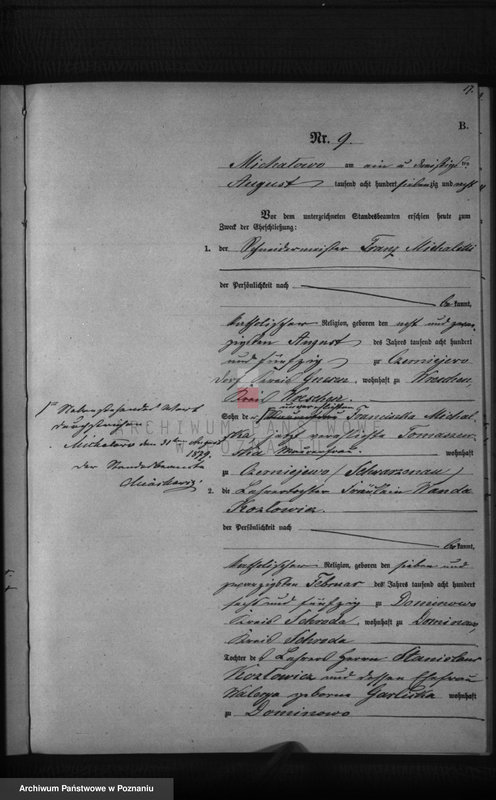 17.
B.
Nr. 9.
Michalowo am ein u dreißigsten
August tausend acht hundert siebenzig und
Vor dem unterzeichneten Standesbeamten erschien heute zum
Zweck der Eheschließung:
1. der Schneidermeister Franz Michalski
der Persönlichkeit nach
be kannt,
katholischer Religion, geboren den und zwan-
zigsten August des Jahres tausend acht hundert
und fünfzig zu Czerniejewo
Kreis Gnesen, wohnhaft zu Wreschen,
Kreis Wreschen
Sohn der Franziska Michal-
ska jetzt verehelichte
wohnhaft
zu Czerniejewo (Schwarzenau)
2. die Lehrertochter Fräulein Wanda
Kozlowicz
der Persönlichkeit nach
be kannt,
katholischer Religion, geboren den sieben und
zwanzigsten Februar des Jahres tausend acht hundert
sechs und fünfzig zu Dominowo
Kreis Schroda wohnhaft zu Dominowo,
Kreis Schroda
Tochter des Lehrers Herrn Stanislaus
Kozlowicz und dessen Ehefrau
Valerya geborne wohnhaft
zu Dominowo
Michalowo den 31ten August
1879.
Der Standesbeamte
ARCHIWUM PAŃSTWOWE
W POZNANIU
Archiwum Państwowe w Poznaniu